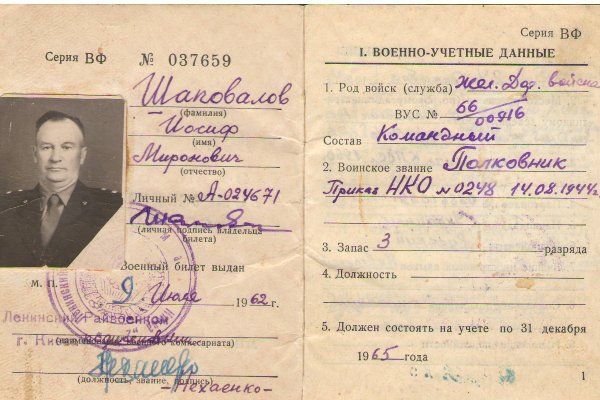 Серия ВФ № 037659
Шаповалов
(фамилия)
Иосиф
(имя)
Миронович
(отчество)
Личный № А-024671
(личная подпись владельца
билета)
Военный билет выдан
М. П.
9 Июля 1962 г.
Ленинский Райвоенком
(должность, звание, подпись)
-Нехаенко-
Серия ВФ
I. ВОЕННО-УЧЕТНЫЕ ДАННЫЕ
1. Род войск (служба) Жел. Дор. войска
ВУС № 66/00916
Состав Командный
2. Воинское звание Полковник
Приказ НКО № 0248 14.08.1944г.
3. Запас 3 разряда
4. Должность
5. Должен состоять на учете по 31 декабря
1965 года
1